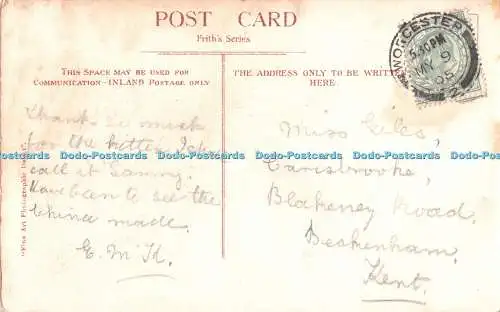 POST CARD
Frith's Series
THIS SPACE MAY BE USED FOR
COMMUNICATION—INLAND POSTAGE ONLY
THE ADDRESS ONLY TO BE WRITTEN
HERE
WORCESTER
5.40PM
MY 9
05
Thanks so much
for the kitten. I
call it Sammy.
Have been to see the
China made.
E. M. K.
Miss Giles,
Carisbrooke,
Blakeney Road,
Beckenham,
Kent.
"Fine Art Photographic
Dodo-Postcards Dodo-Postcards Dodo-Postcards Dodo-Postcards Dodo-Postcards